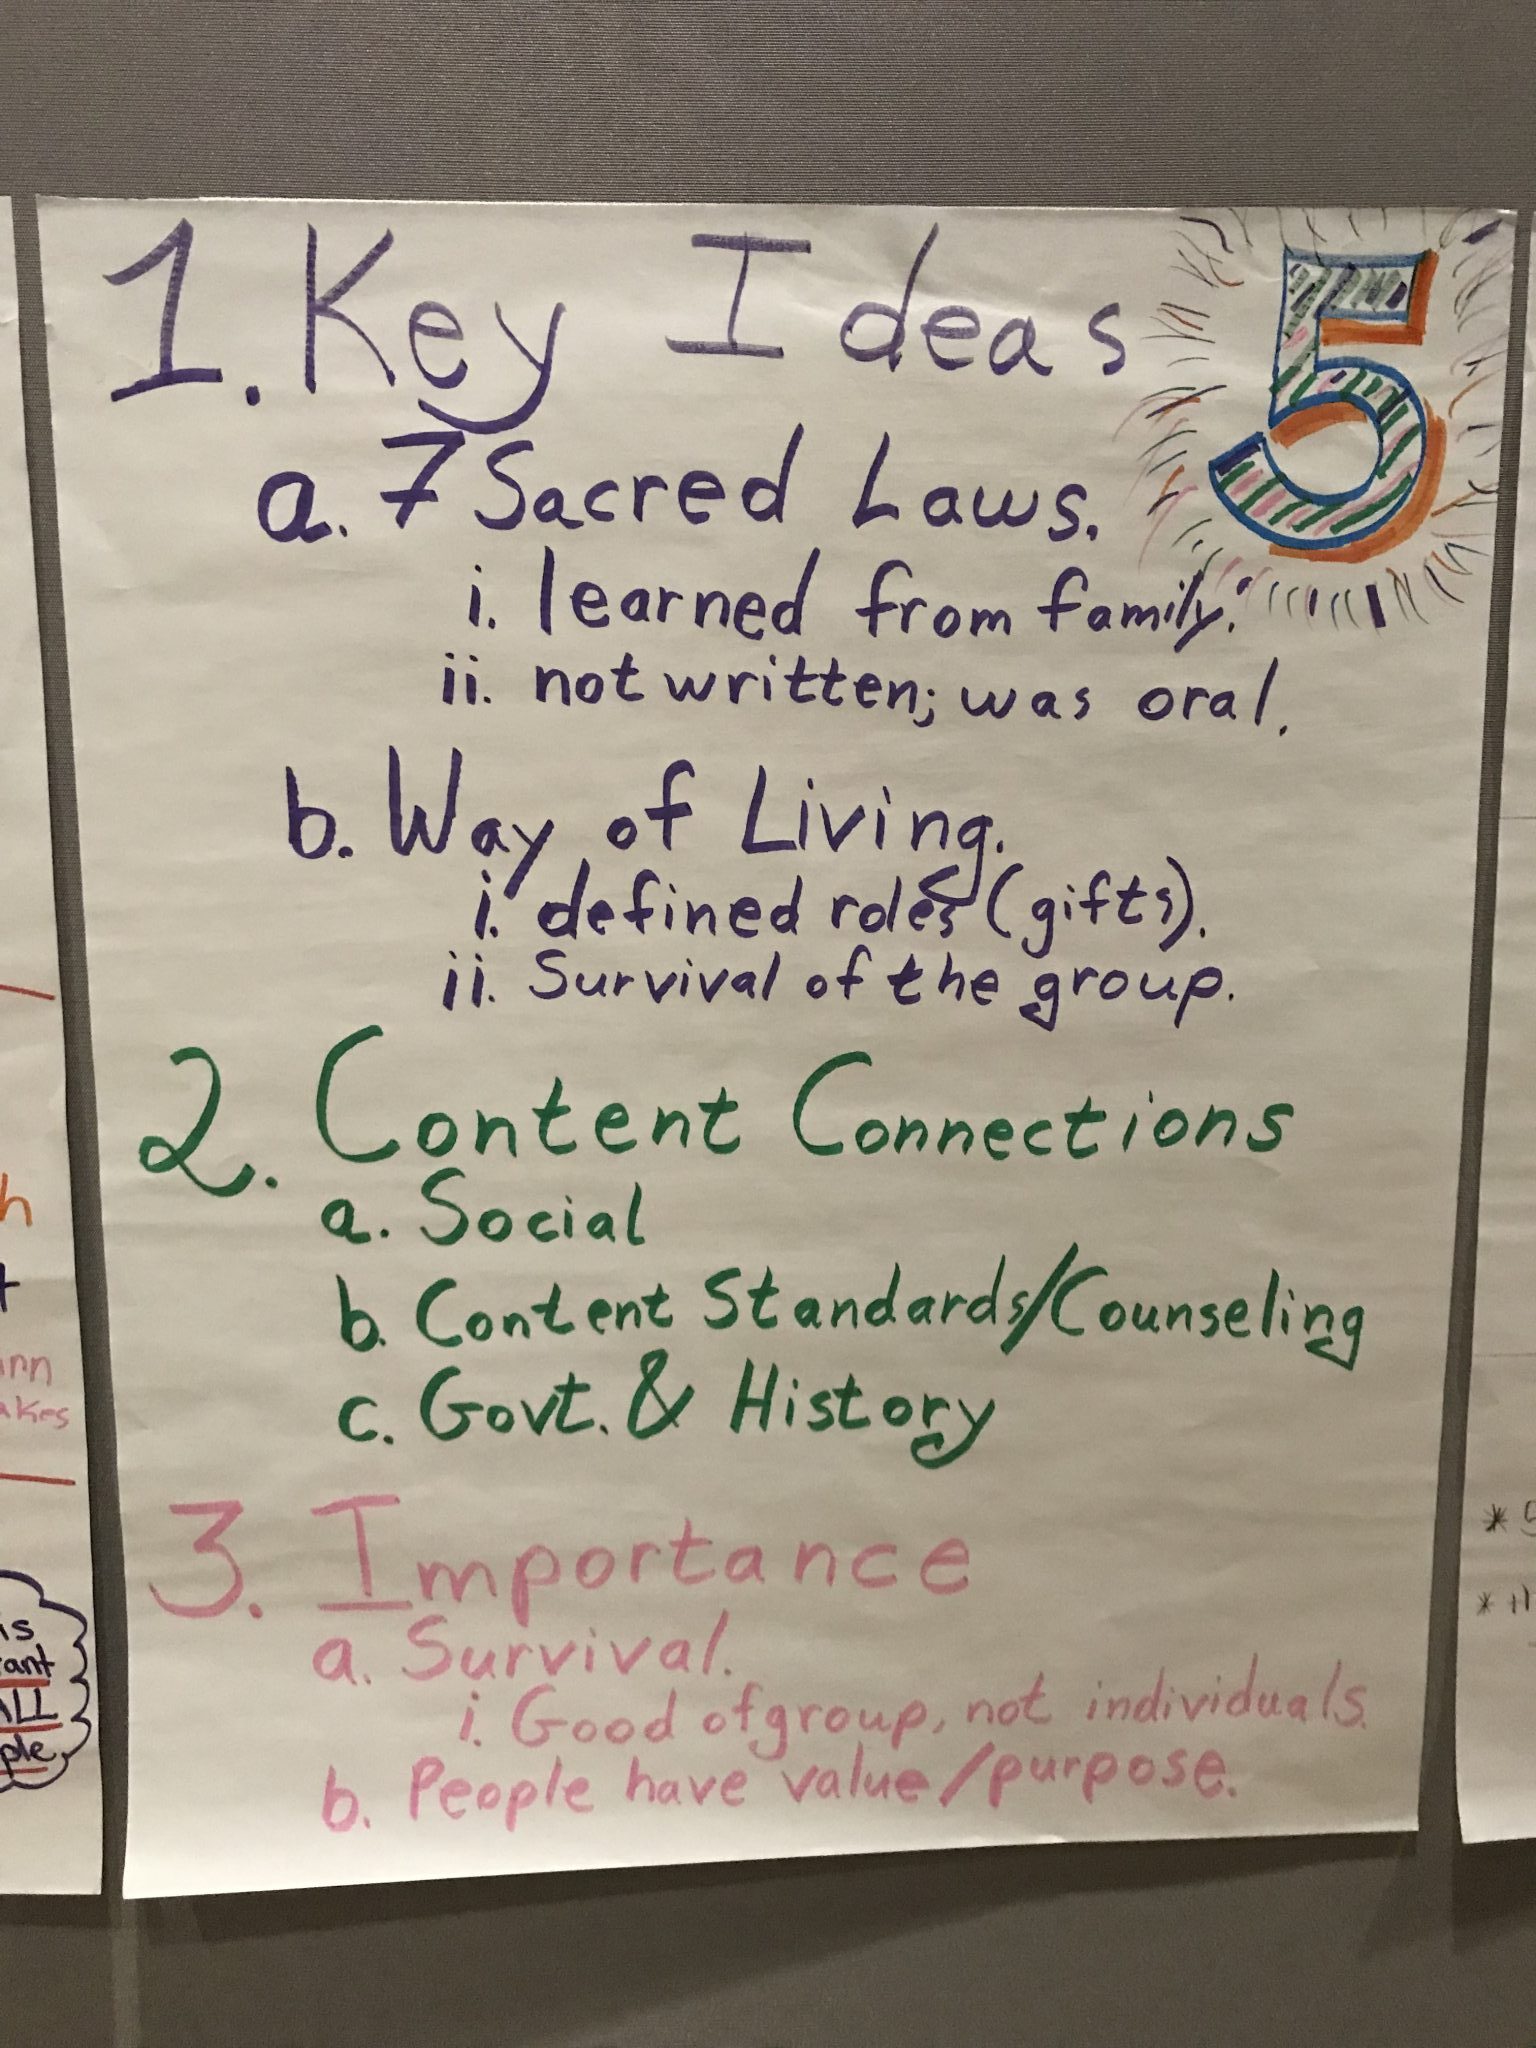 1. Key Ideas
5
a. 7 Sacred Laws.
i. learned from family.
ii. not written; was oral.
b. Way of Living.
i. defined roles (gifts).
ii. Survival of the group.
2. Content Connections
a. Social
b. Content Standards/Counseling
c. Govt. & History
3. Importance
a. Survival.
i. Good of group, not individuals.
b. People have value/purpose.
is
ALL